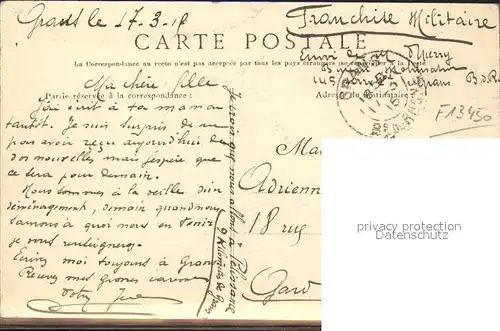 Grans le 17-3-18
Franchise Militaire
CARTE POSTALE
La Correspondance au recto n'est pas acceptée par tous les pays étrangers (se renseigner à la Poste)
Envoi de
Grans B.d.R
Partie réservée à la correspondance
Adresse du Destinataire
Ma chère fille
J'ai écrit à ta maman
tantôt. Je suis surpris de ne
pas avoir reçu aujourd'hui de
vos nouvelles mais j'espère que
ce sera pour demain.
Nous sommes à la veille d'un
déménagement, demain quand nous
saurons à quoi nous en tenir
je vous renseignerez.
Ecrivez moi toujours à Grans
Recevez mes grosses caresses
Votre Père
je crois que nous allons à Pélissane
9 Kilomètres de Grans
Ma
Adrienne
18 rue
Gard
F13450
privacy protection
Datenschutz